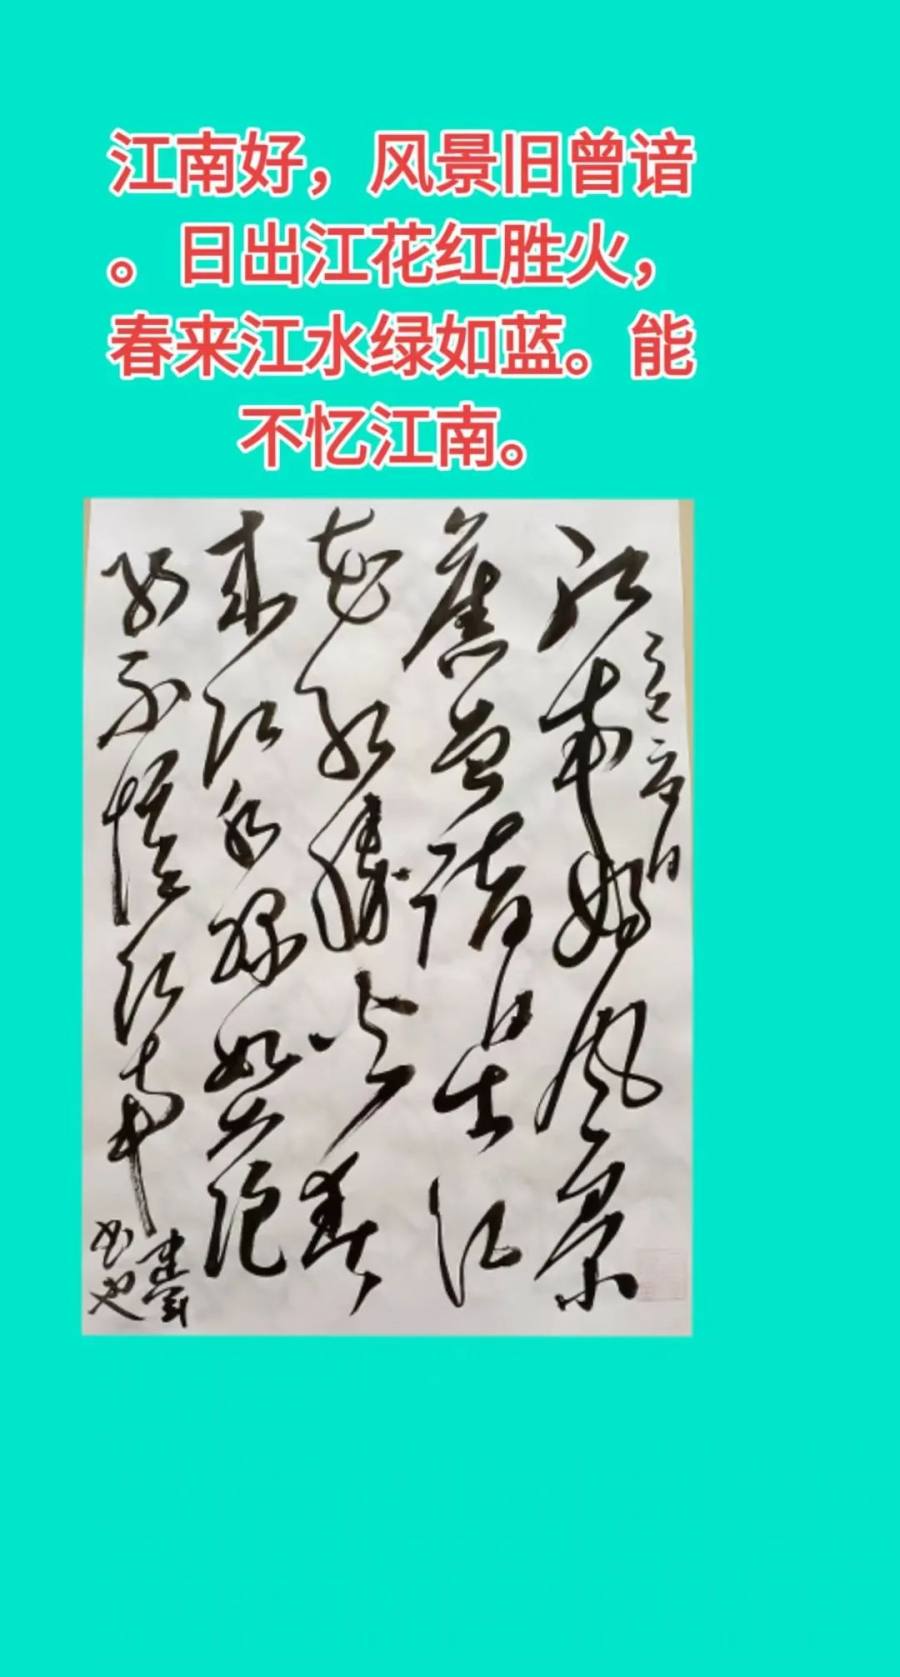 江南好，风景旧曾谙
。日出江花红胜火，
春来江水绿如蓝。能
不忆江南。
江南好风景
舊曾諳日出江
花紅勝火春
来江水綠如藍
能不憶江南